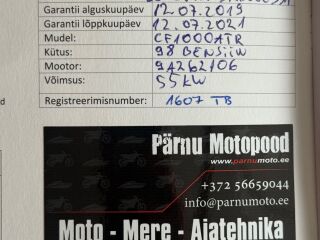 Garantii alguskuupäev 12.07.2019
Garantii lõppkuupäev 12.07.2021
Mudel: CF1000ATR
Kütus: 98 BENSIIN
Mootor: 9A262106
Võimsus: 55KW
Registreerimisnumber: 1607 TB
Pärnu Motopood
www.parnumoto.ee
+372 56659044
info@parnumoto.ee
Moto - Mere - Aiatehnika